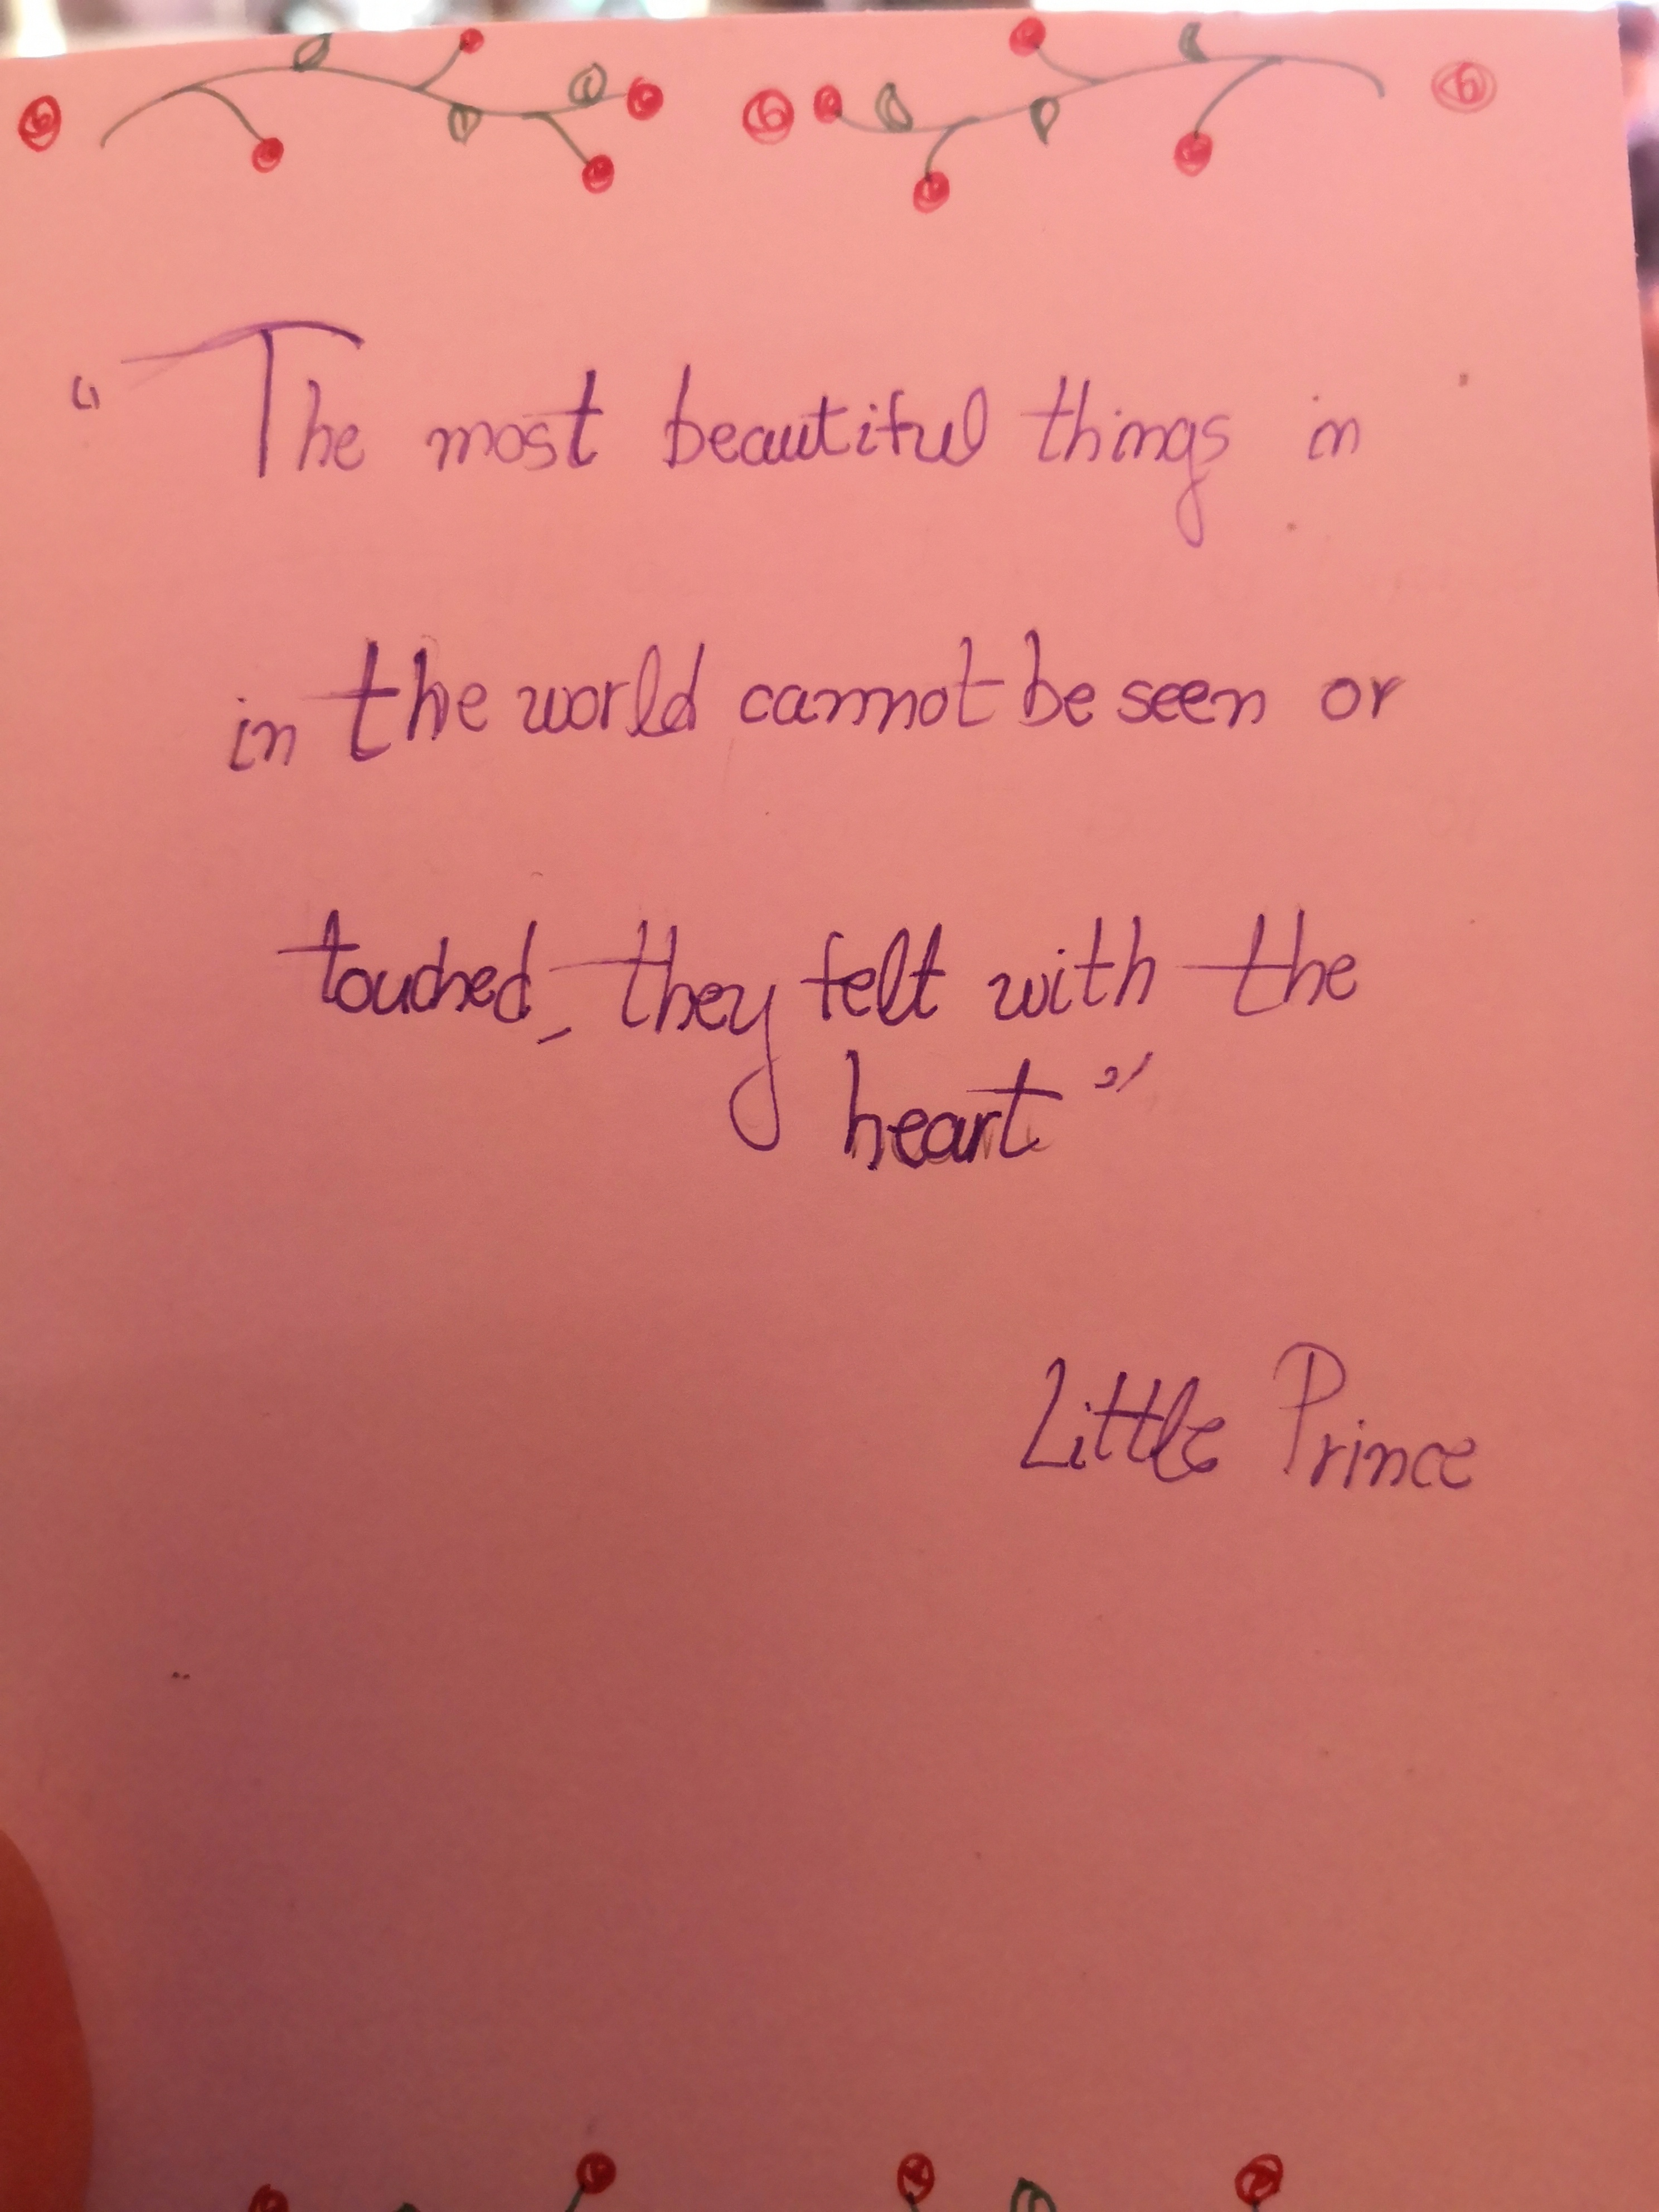 “The most beautiful things in
in the world cannot be seen or
touched, they felt with the
heart”
Little Prince